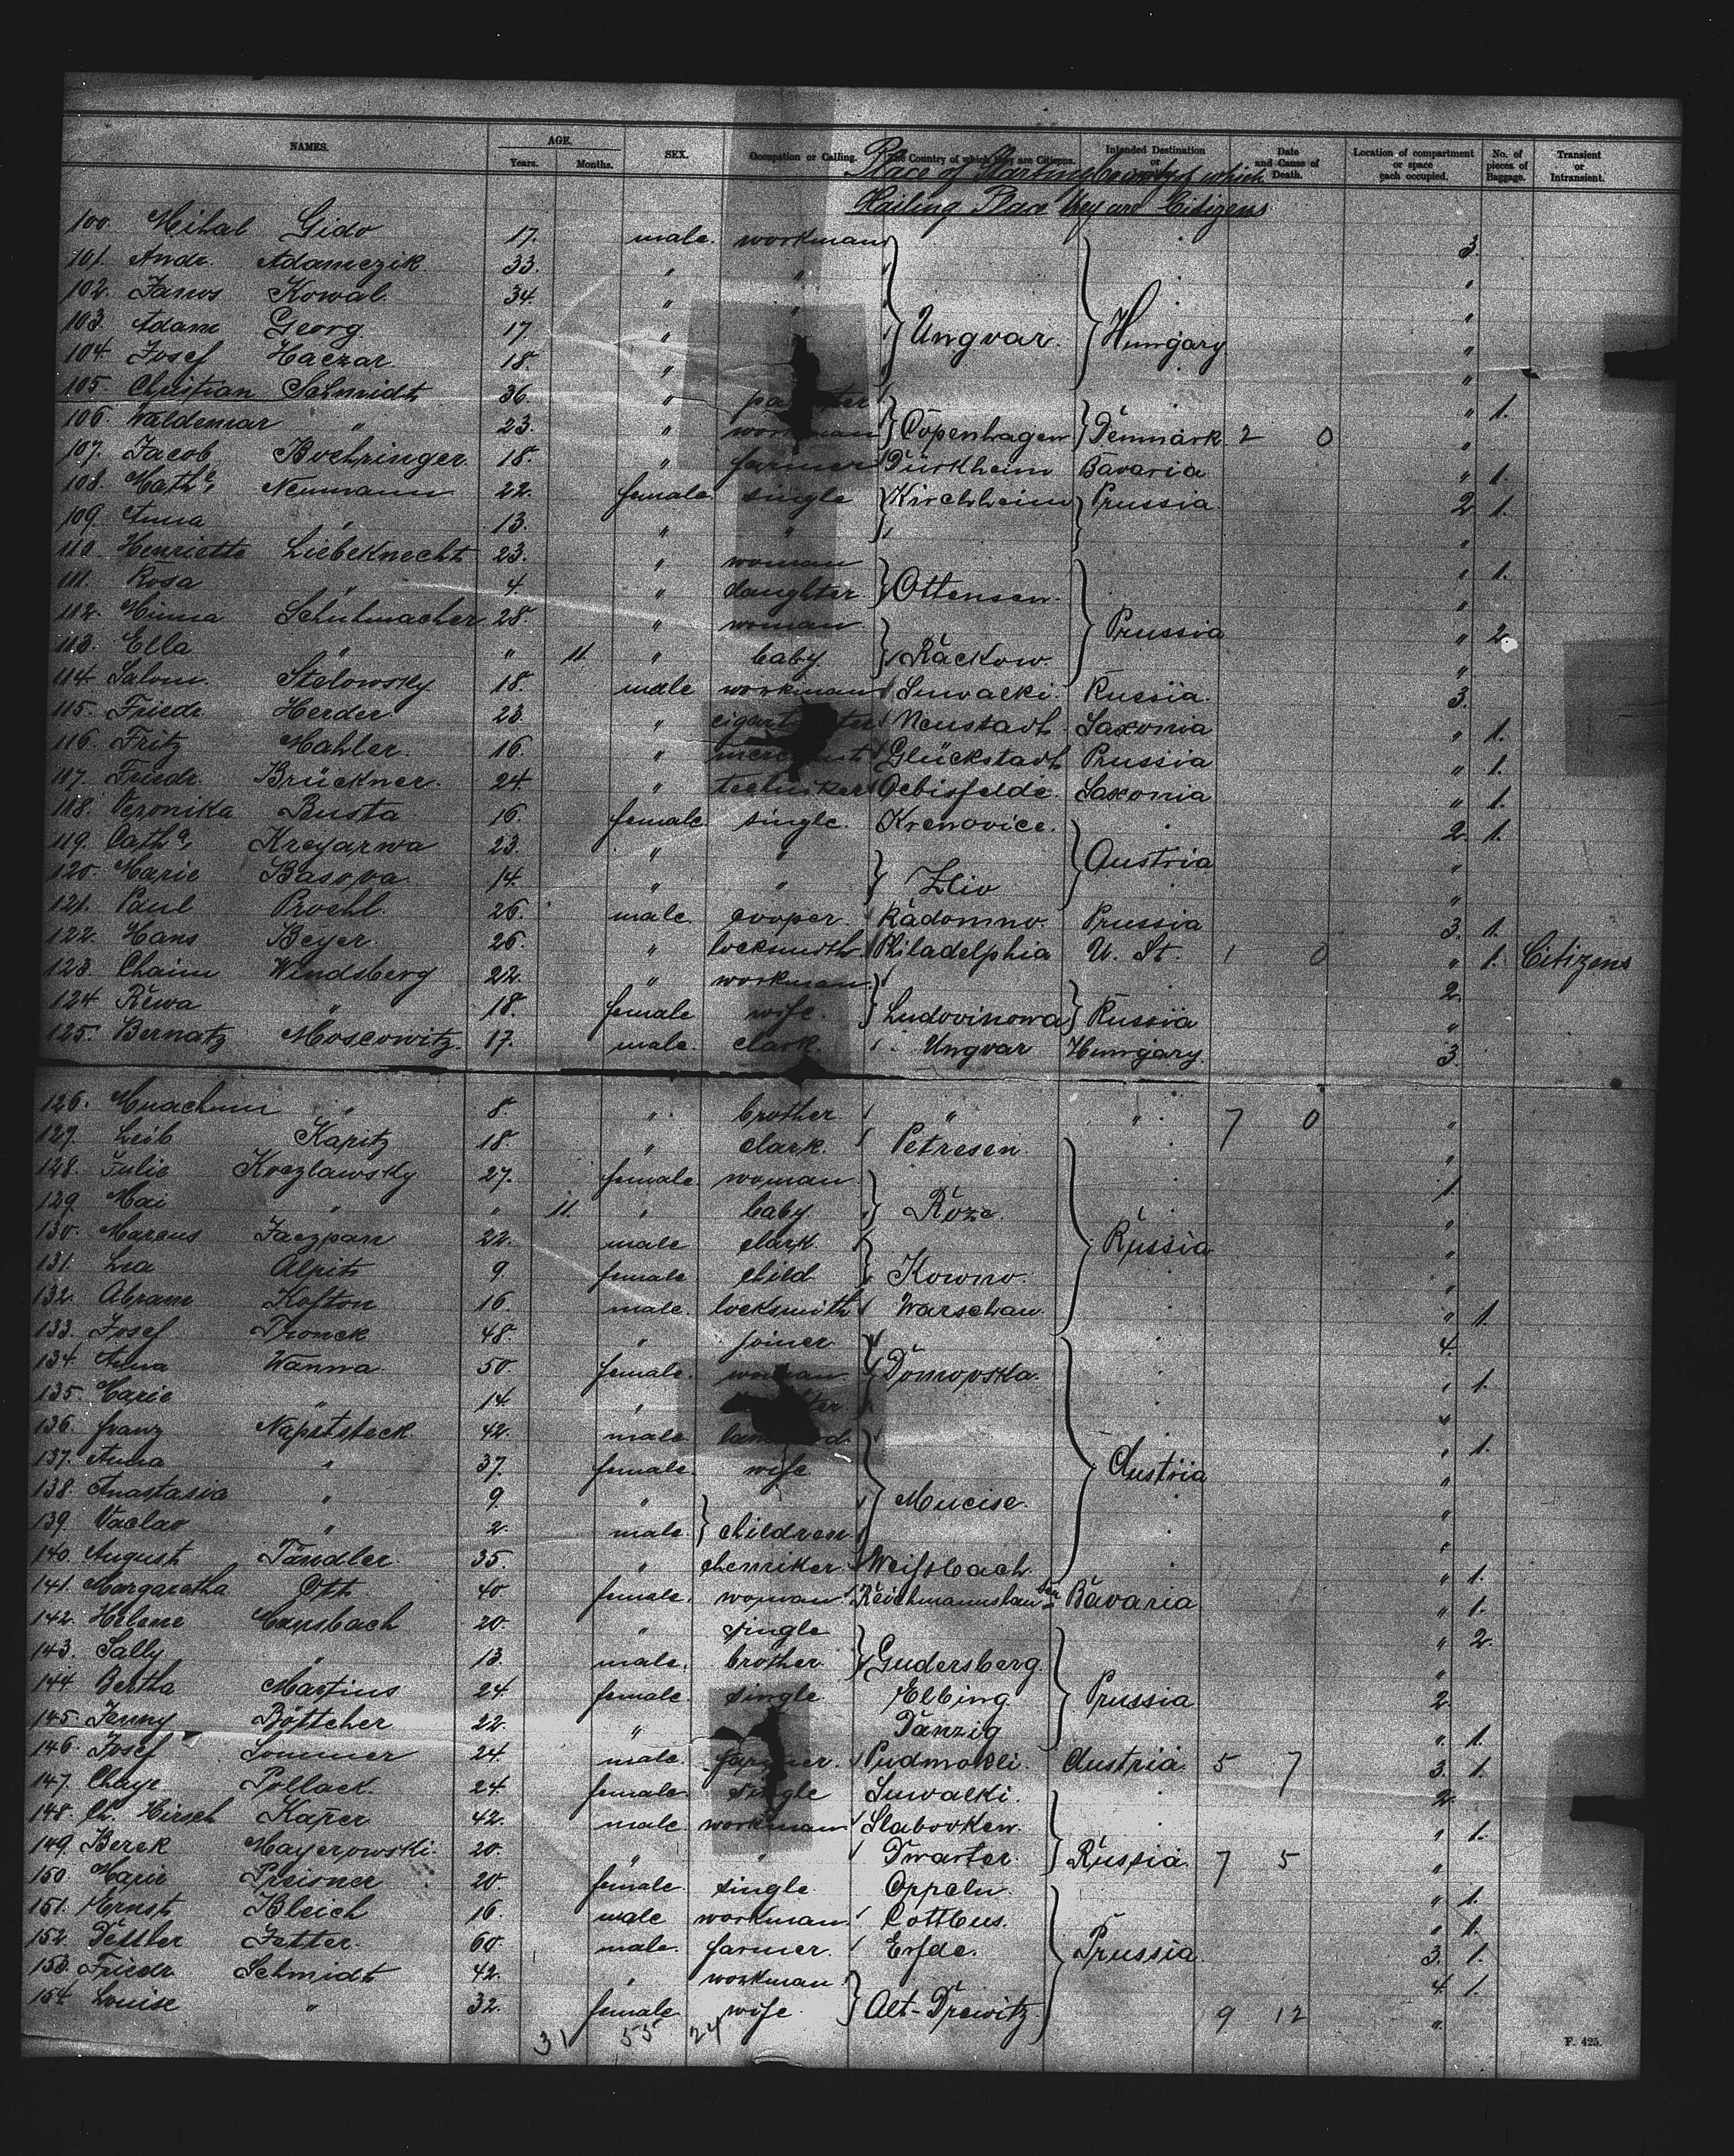 NAMES. AGE. SEX. Occupation or Calling. The Country of which they are Citizens. Intended Destination or Date and Cause of Death. Location of compartment or space each occupied. No. of pieces of Baggage. Transient or Intransient.
Years. Months.
Place of Starting Country of which
Hailing Place they are Citizens
100. Mihal Gido 17. male. workman 3.
101. Andr. Adamczik 33. " " "
102. Janos Kowal 34. " " "
103. Adam Georg 17. " Ungvar. Hungary "
104. Josef Haczar 18. " "
105. Christian Schmidt 36. " " 1.
106. Waldemar " 23. " workman Copenhagen Denmark 2 0 "
107. Jacob Boehringer 18. " farmer Dürkheim Bavaria " 1.
108. Mathe, Neumann 22. female. single Kirchheim Prussia 2. 1.
109. Anna " 13. " " "
110. Henriette Liebeknecht 23. " woman " 1.
111. Rosa " 4. " daughter Ottensen. "
112. Minna Schuhmacher 28. " woman Prussia " 2.
113. Ella " " 11. " baby Räckow. "
114. Salom. Stelowsky 18. male workman Suwalki. Russia. 3.
115. Friedr. Herder 23. " Neustadt Saxonia " 1.
116. Fritz Mahler. 16. " Glückstadt Prussia " 1.
117. Friedr. Brückner. 24. " techniker Oebisfelde. Saxonia " 1.
118. Veronika Busta 16. female single. Krenovice. 2. 1.
119. Catha, Kreyarwa 23. " " Austria "
120. Marie Basova 14. " " Zliv "
121. Paul Proehl. 26. male. cooper. Radomno. Prussia 3. 1.
122. Hans Beyer. 26. " locksmith. Philadelphia U. St. 1 0 " 1. Citizens
123. Chaim Windsberg 22. " workman. 2.
124. Rewa " 18. female wife. Ludovinowa Russia "
125. Bernatz Moscowitz. 17. male. clark. Ungvar Hungary. 3.
126. " 8. " brother. " " 7 0 "
127. Leib Kapitz 18. " clark. Petresen. "
128. Julie Koczlawsky 27. female. woman 1.
129. Mai " " 11. " baby Roze. "
130. Marcus Jaczpan 22. male clark. Russia "
131. Lea Alpitz 9. female child Kowno. "
132. Abram Kofton 16. male. locksmith Warschau. " 1.
133. Josef Tronek 48. " joiner 4.
134. Anna Wanna. 50. female. woman Domovska. " 1.
135. Marie " 14. " "
136. Franz Napetsteck 42. male. " 1.
137. Anna " 37. female. wife Austria "
138. Anastasia " 9. " Mucise. "
139. Vaclav " 2. male. children "
140. August Tandler. 35. " chemiker Weissbach " 1.
141. Margaretha Ott 40. female. woman Reichmannshausen Bavaria " 1.
142. Helene Mansbach 20. " single " 2.
143. Sally " 13. male. brother. Gudersberg. "
144. Bertha Martins 24. female. single Elbing Prussia 2.
145. Jenny Böttcher 22. " Danzig " 1.
146. Josef Sommer 24. male. farmer. Pudmokli. Austria. 5 7 3. 1.
147. Chaye Pollack. 24. female. single Suwalki. 2.
148. Ch. Hirsch Kaper 42. male workman Slabovken. " 1.
149. Berek Mayerowski. 20. " " Twarter. Russia. 7 5 "
150. Marie Preisner 20. female. single. Oppeln. " 1.
151. Ernst Bleich 16. male workman. Cottbus. " 1.
152. Dettler Jetter. 60. male. farmer. Erfde. Prussia. 3. 1.
153. Friedr Schmidt 42. " workman 4. 1.
154. Louise " 32. female. wife. Alt-Drewitz. 9 12 "
31 55 24
F. 425.